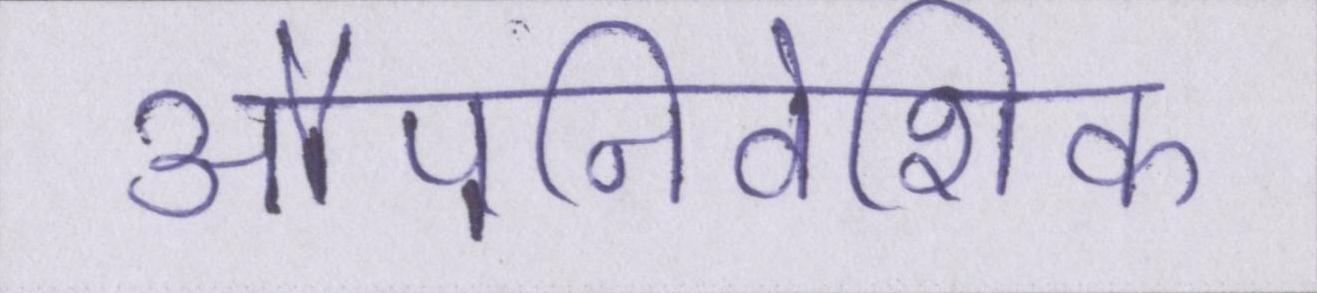 औपनिवेशिक